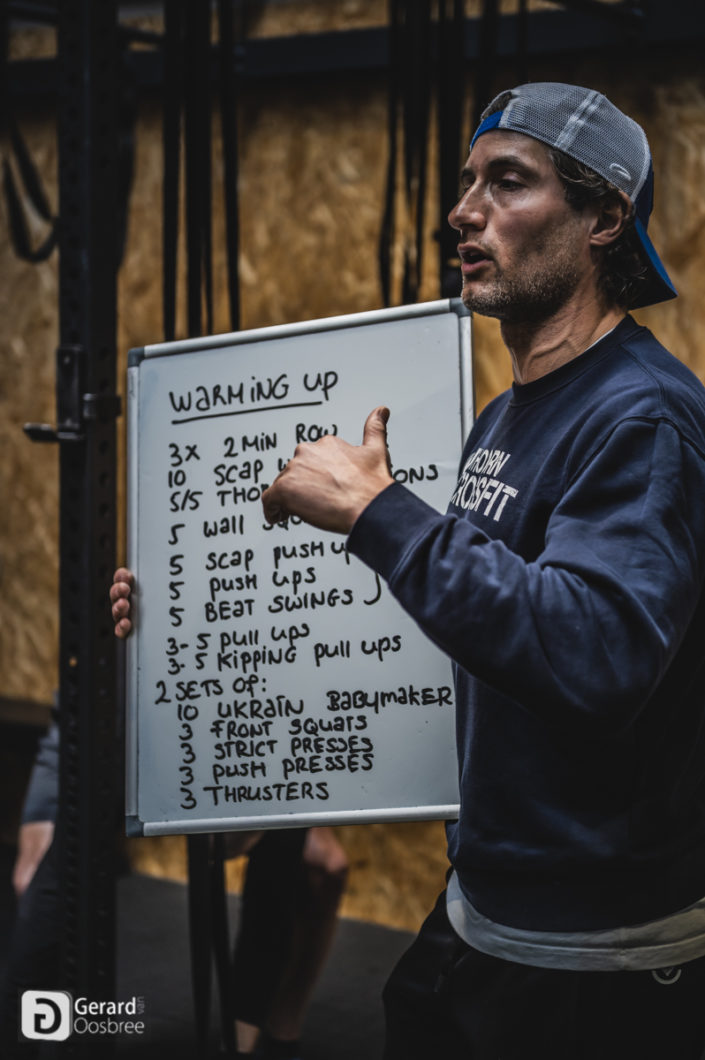 WARMING UP
3x 2 MIN ROW
10 SCAP
5/5 THO
5 WALL SQU
5 SCAP PUSH UP
5 PUSH UPS
5 BEAT SWINGS
3-5 PULL UPS
3-5 KIPPING PULL UPS
2 SETS OF:
10 UKRAIN BABYMAKER
3 FRONT SQUATS
3 STRICT PRESSES
3 PUSH PRESSES
3 THRUSTERS
Gerard van
Oosbree